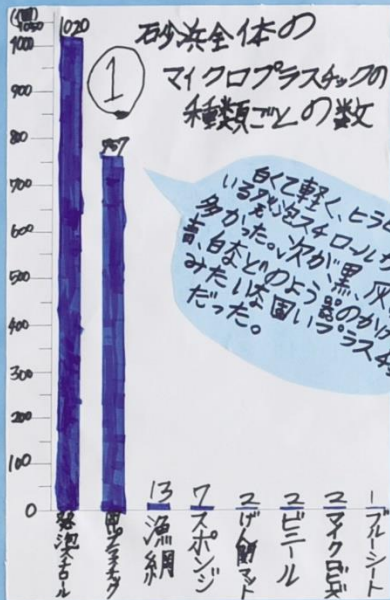 (個)
1050
1000
900
800
700
600
500
400
300
200
100
0
1020
757
①
砂浜全体の
マイクロプラスチックの
種類ごとの数
白くて軽く、ヒラ
いる発泡スチロール
多かった。次が、黒、灰
青、白などのよう器のかけ
みたいな固いプラスチ
だった。
13
7
2
2
2
1
発泡スチロール
固いプラスチック
漁網
スポンジ
ビニール
マイクロビーズ
ブルーシート